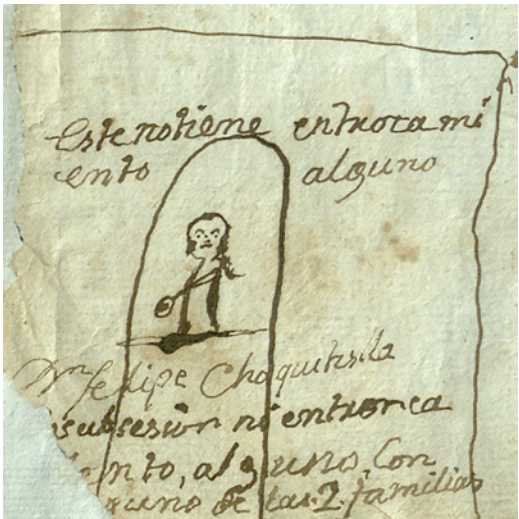 Este no tiene entroca mi
ento alguno
Dn felipe Choquetisla
subsesion ni entronca
ento, alguno, Con
guno de las 2 familias